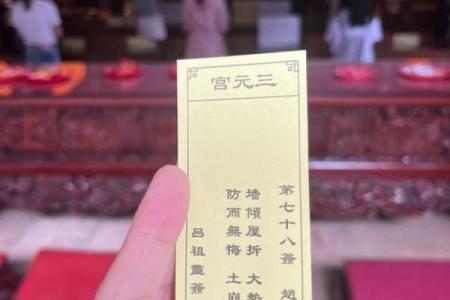 三元宮
第七十八簽 趙
墙傾屋拆 大勢
防而無悔 土崩
呂祖靈簽